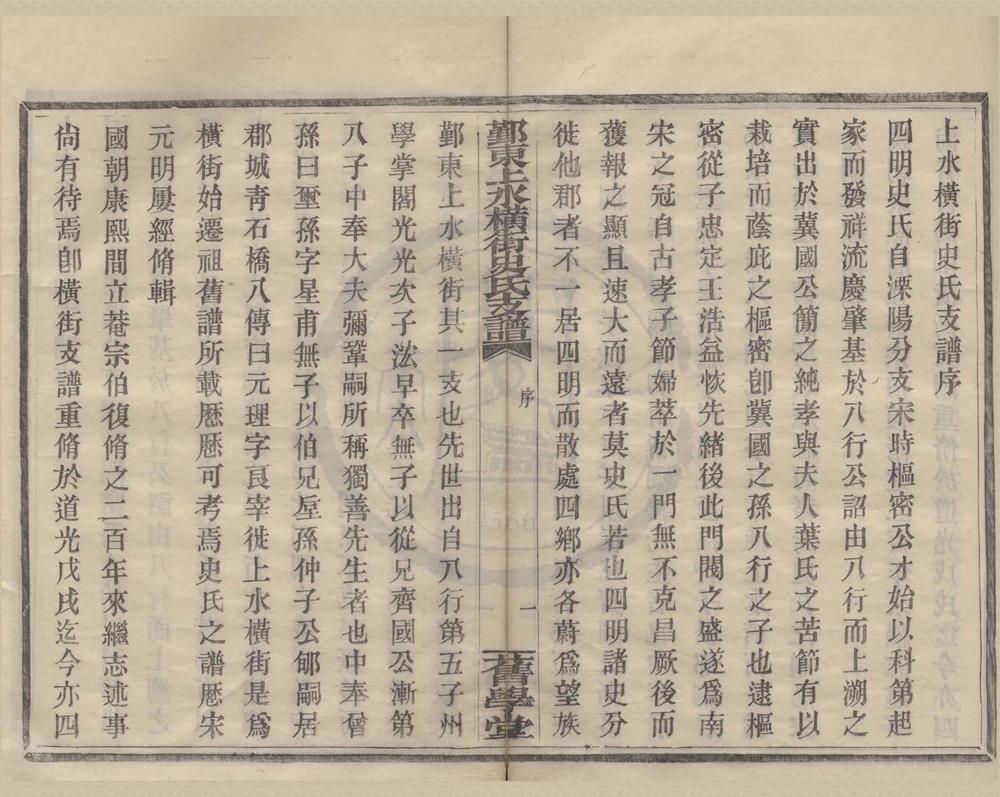 上水橫街史氏支譜序
四明史氏自溧陽分支宋時樞密公才始以科第起
家而發祥流慶肇基於八行公詔由八行而上溯之
實出於冀國公簡之純孝與夫人葉氏之苦節有以
栽培而蔭庇之樞密卽冀國之孫八行之子也逮樞
密從子忠定王浩益恢先緒後此門閥之盛遂爲南
宋之冠自古孝子節婦萃於一門無不克昌厥後而
獲報之顯且速大而遠者莫史氏若也四明諸史分
徙他郡者不一居四明而散處四鄉亦各蔚爲望族
鄞東上水橫街史氏支譜
序
一
舊學堂
鄞東上水橫街其一支也先世出自八行第五子州
學掌閣光光次子浤早卒無子以從兄齊國公漸第
八子中奉大夫彌鞏嗣所稱獨善先生者也中奉曾
孫曰壐孫字星甫無子以伯兄垕孫仲子公邰嗣居
郡城靑石橋八傳曰元理字良宰徙上水橫街是爲
橫街始遷祖舊譜所載歷歷可考焉史氏之譜歷宋
元明屢經脩輯
國朝康熙間立菴宗伯復脩之二百年來繼志述事
尙有待焉卽橫街支譜重脩於道光戊戌迄今亦四